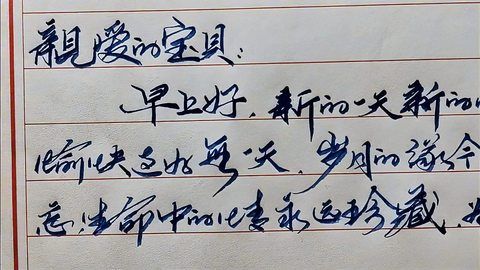 親爱的宝贝：
早上好，新的一天新的
愉快过好每一天，岁月的缘今
忘，生命中的情永远珍藏，